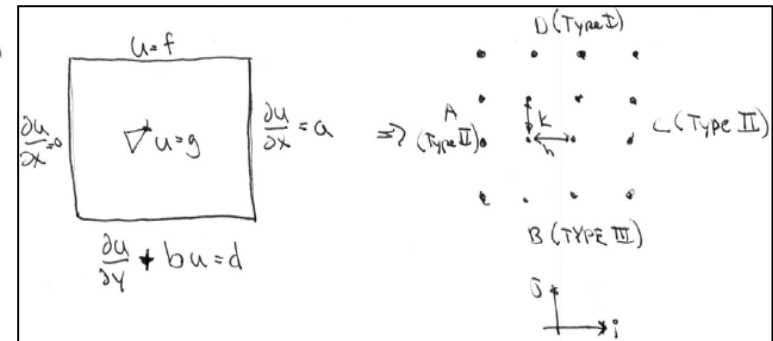 u=f
∂u/∂x=0
∇²u=g
∂u/∂x = a
∂u/∂y + bu=d
⇒
D (Type I)
A
(Type II)
k
h
C (Type II)
B (TYPE III)
j
i